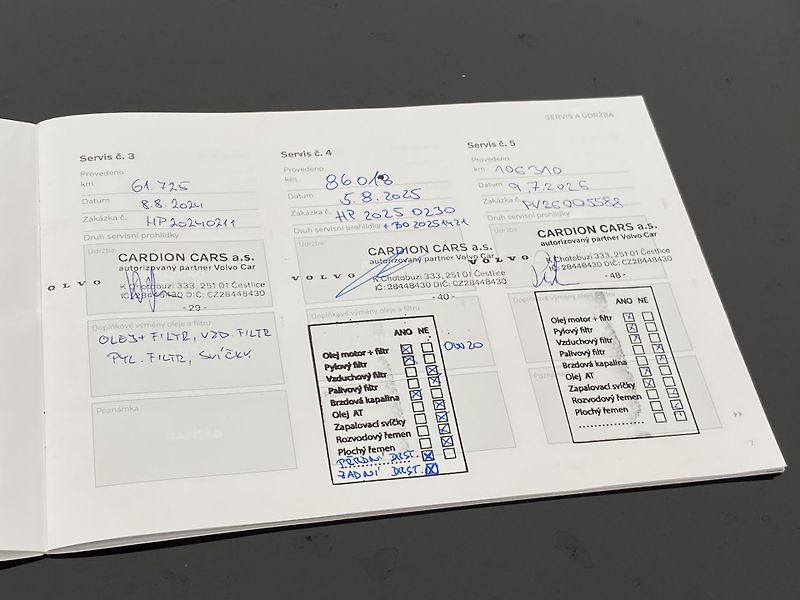 SERVIS A ÚDRŽBA
Servis č. 3
Provedeno
km 61.725
Datum 8.8.2024
Zakázka č. HP20240211
Druh servisní prohlídky
Údržba
CARDION CARS a.s.
autorizovaný partner Volvo Car
VOLVO
K Chotobuzi 333, 251 01 Čestlice
IČ: 28448430 DIČ: CZ28448430
- 29 -
Doplňkové výměny oleje a filtru
OLEJ + FILTR, VZD. FILTR
PYL. FILTR, SVÍČKY
Poznámka
Servis č. 4
Provedeno
km 86013
Datum 5.8.2025
Zakázka č. HP 2025 0230
+ BO 20251421
Druh servisní prohlídky
Údržba
CARDION CARS a.s.
autorizovaný partner Volvo Car
VOLVO
K Chotobuzi 333, 251 01 Čestlice
IČ: 28448430 DIČ: CZ28448430
- 40 -
ANO NE
Olej motor + filtr
0W20
Pylový filtr
Vzduchový filtr
Palivový filtr
Brzdová kapalina
Olej AT
Zapalovací svíčky
Rozvodový řemen
Plochý řemen
PŘEDNÍ DRST.
ZADNÍ DRST.
Servis č. 5
Provedeno
km 106310
Datum 9.7.2026
Zakázka č. PV26005588
Druh servisní prohlídky
CARDION CARS a.s.
autorizovaný partner Volvo Car
VOLVO
K Chotobuzi 333, 251 01 Čestlice
IČ: 28448430 DIČ: CZ28448430
- 48 -
ANO NE
Olej motor + filtr
Pylový filtr
Vzduchový filtr
Palivový filtr
Brzdová kapalina
Olej AT
Zapalovací svíčky
Rozvodový řemen
Plochý řemen
7